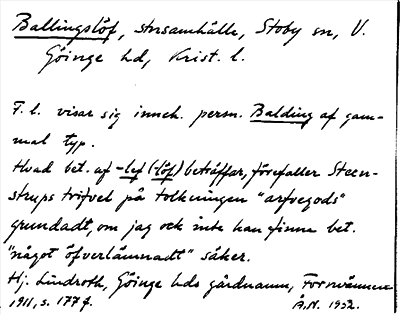 Ballingslöf, stnsamhälle, Stoby sn, V.
Göinge hd, Krist. l.
F. l. visar sig inneh. persn. Balding af gam-
mal typ.
Hvad bet. af -lef (-löf) beträffar, förefaller Steen-
strups tvifvel på tolkningen "arfvegods"
grundadt, om jag ock inte kan finna bet.
"något öfverlämnadt" säker.
Hj. Lindroth, Göinge hds gårdnamn, Fornvännen
1911, s. 177 f. Å.N. 1952.